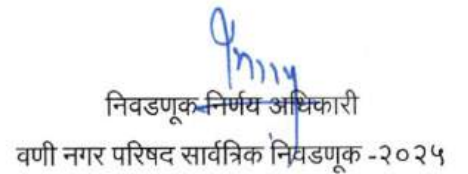 निवडणूक निर्णय अधिकारी
वणी नगर परिषद सार्वत्रिक निवडणूक -२०२५